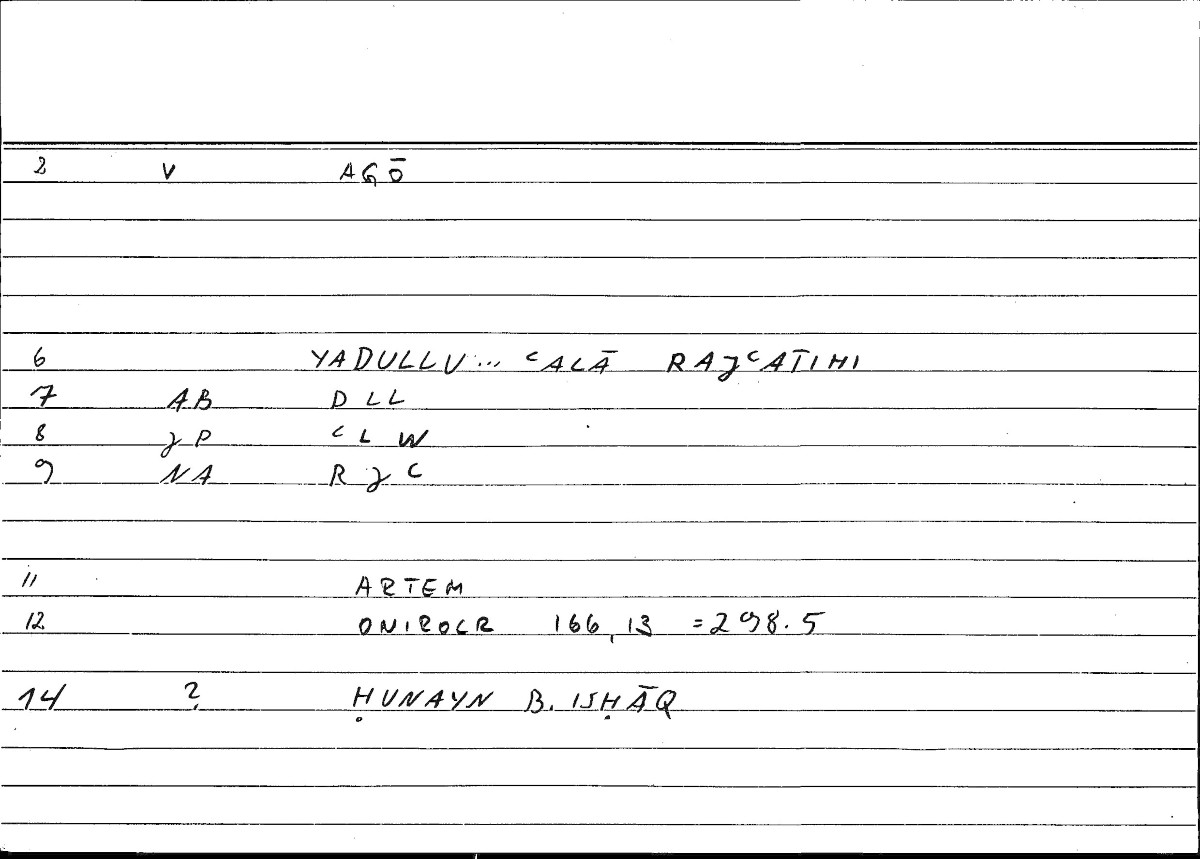 2 V AGŌ
6 YADULLU... ʿALĀ RAJʿATIHI
7 AB DLL
8 JP ʿLW
9 NA RJʿ
11 ARTEM
12 ONIROCR 166,13 =298.5
14 ? ḤUNAYN B. ISḤĀQ